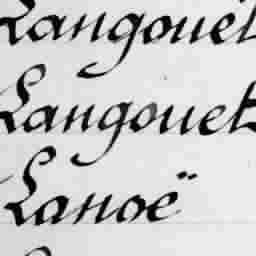 Langouët
Langouet
Lanoë